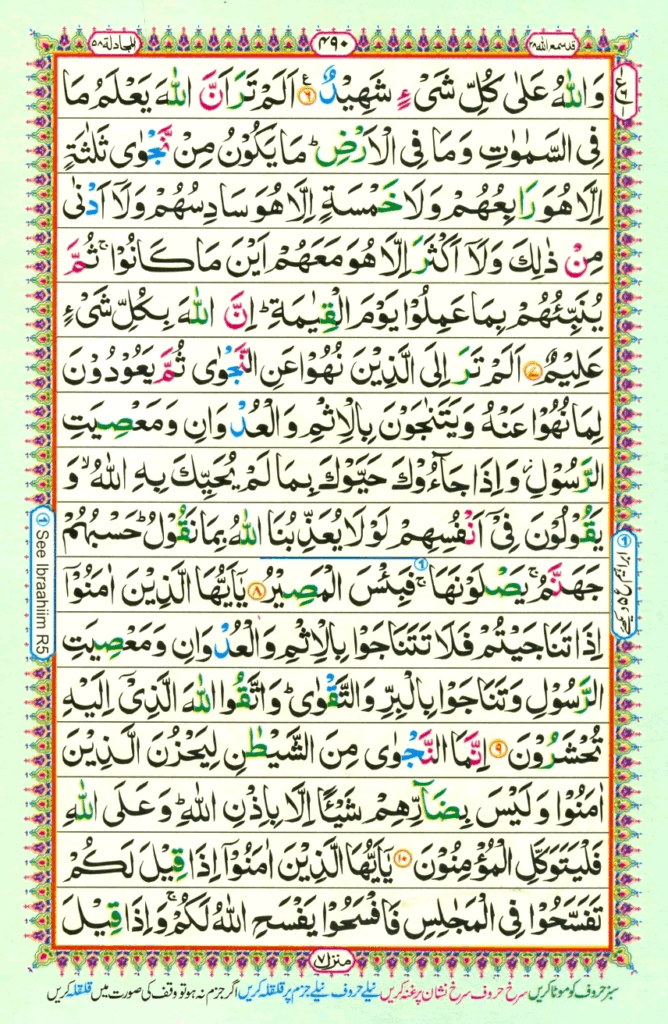 قد سمع الله ٢٨
٤٩٠
المجادلة ٥٨
وَاللّٰهُ عَلٰى كُلِّ شَىْءٍ شَهِيْدٌ ﴿٦﴾ اَلَمْ تَرَ اَنَّ اللّٰهَ يَعْلَمُ مَا
فِى السَّمٰوٰتِ وَمَا فِى الْاَرْضِؕ مَا يَكُوْنُ مِنْ نَّجْوٰى ثَلٰثَةٍ
اِلَّا هُوَ رَابِعُهُمْ وَلَا خَمْسَةٍ اِلَّا هُوَ سَادِسُهُمْ وَلَاۤ اَدْنٰى
مِنْ ذٰلِكَ وَلَاۤ اَكْثَرَ اِلَّا هُوَ مَعَهُمْ اَيْنَ مَا كَانُوْاۚ ثُمَّ
يُنَبِّئُهُمْ بِمَا عَمِلُوْا يَوْمَ الْقِيٰمَةِؕ اِنَّ اللّٰهَ بِكُلِّ شَىْءٍ
عَلِيْمٌ ﴿٧﴾ اَلَمْ تَرَ اِلَى الَّذِيْنَ نُهُوْا عَنِ النَّجْوٰى ثُمَّ يَعُوْدُوْنَ
لِمَا نُهُوْا عَنْهُ وَيَتَنٰجَوْنَ بِالْاِثْمِ وَالْعُدْوَانِ وَمَعْصِيَتِ
الرَّسُوْلِ وَاِذَا جَآءُوْكَ حَيَّوْكَ بِمَا لَمْ يُحَيِّكَ بِهِ اللّٰهُۙ وَ
يَقُوْلُوْنَ فِىْۤ اَنْفُسِهِمْ لَوْلَا يُعَذِّبُنَا اللّٰهُ بِمَا نَقُوْلُؕ حَسْبُهُمْ
جَهَنَّمُۚ يَصْلَوْنَهَاۚ فَبِئْسَ الْمَصِيْرُ ﴿٨﴾ يٰۤاَيُّهَا الَّذِيْنَ اٰمَنُوْۤا
اِذَا تَنَاجَيْتُمْ فَلَا تَتَنَاجَوْا بِالْاِثْمِ وَالْعُدْوَانِ وَمَعْصِيَتِ
الرَّسُوْلِ وَتَنَاجَوْا بِالْبِرِّ وَالتَّقْوٰىؕ وَاتَّقُوا اللّٰهَ الَّذِىْۤ اِلَيْهِ
تُحْشَرُوْنَ ﴿٩﴾ اِنَّمَا النَّجْوٰى مِنَ الشَّيْطٰنِ لِيَحْزُنَ الَّذِيْنَ
اٰمَنُوْا وَلَيْسَ بِضَآرِّهِمْ شَيْئًا اِلَّا بِاِذْنِ اللّٰهِؕ وَعَلَى اللّٰهِ
فَلْيَتَوَكَّلِ الْمُؤْمِنُوْنَ ﴿١٠﴾ يٰۤاَيُّهَا الَّذِيْنَ اٰمَنُوْۤا اِذَا قِيْلَ لَكُمْ
تَفَسَّحُوْا فِى الْمَجٰلِسِ فَافْسَحُوْا يَفْسَحِ اللّٰهُ لَكُمْۚ وَاِذَا قِيْلَ
① See Ibraahiim R5
منزل ٧
سبز حروف کو موٹا کریں سرخ حروف سرخ نشان پر غنہ کریں نیلے حروف نیلے جزم پر قلقلہ کریں اگر جزم نہ ہو تو وقف کی صورت میں قلقلہ کریں